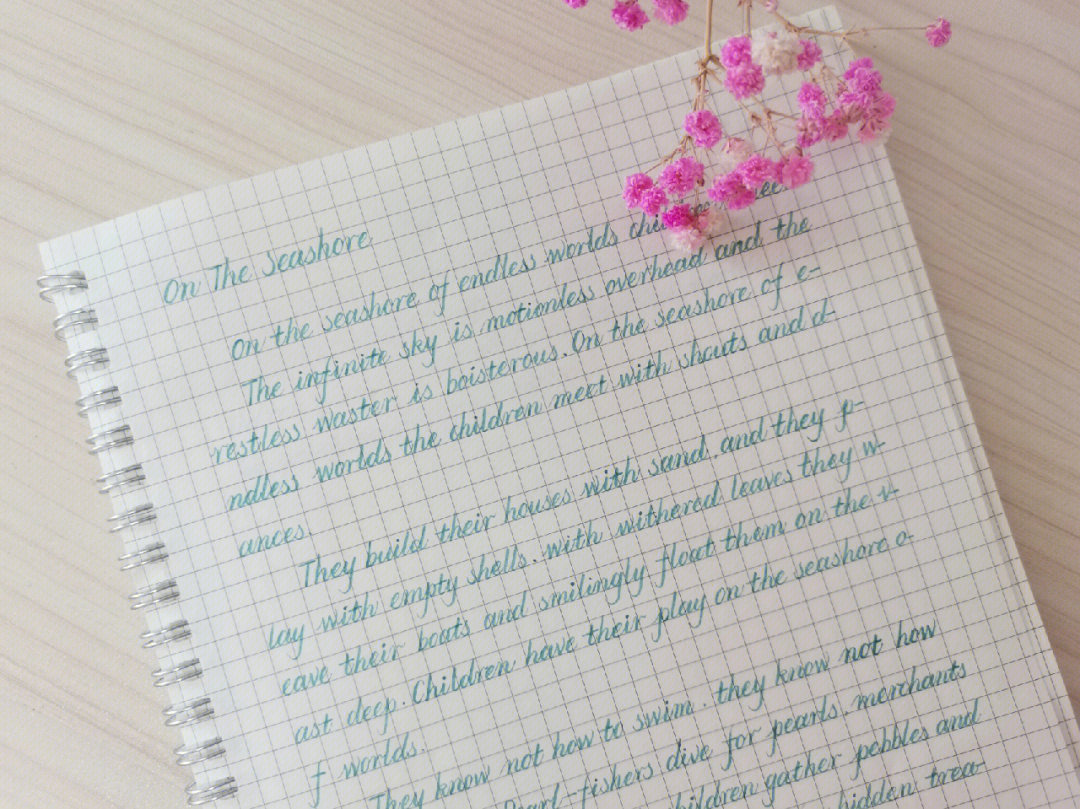 On The Seashore
On the seashore of endless worlds
The infinite sky is motionless overhead and the
restless waster is boisterous. On the seashore of e-
ndless worlds the children meet with shouts and d-
ances.
They build their houses with sand. and they p-
lay with empty shells. with withered leaves they w-
eave their boats and smilingly float them on the v-
ast deep. Children have their play on the seashore o-
f worlds.
They know not how to swim. they know not how
fishers dive for pearls. merchants
children gather pebbles and
hidden trea-